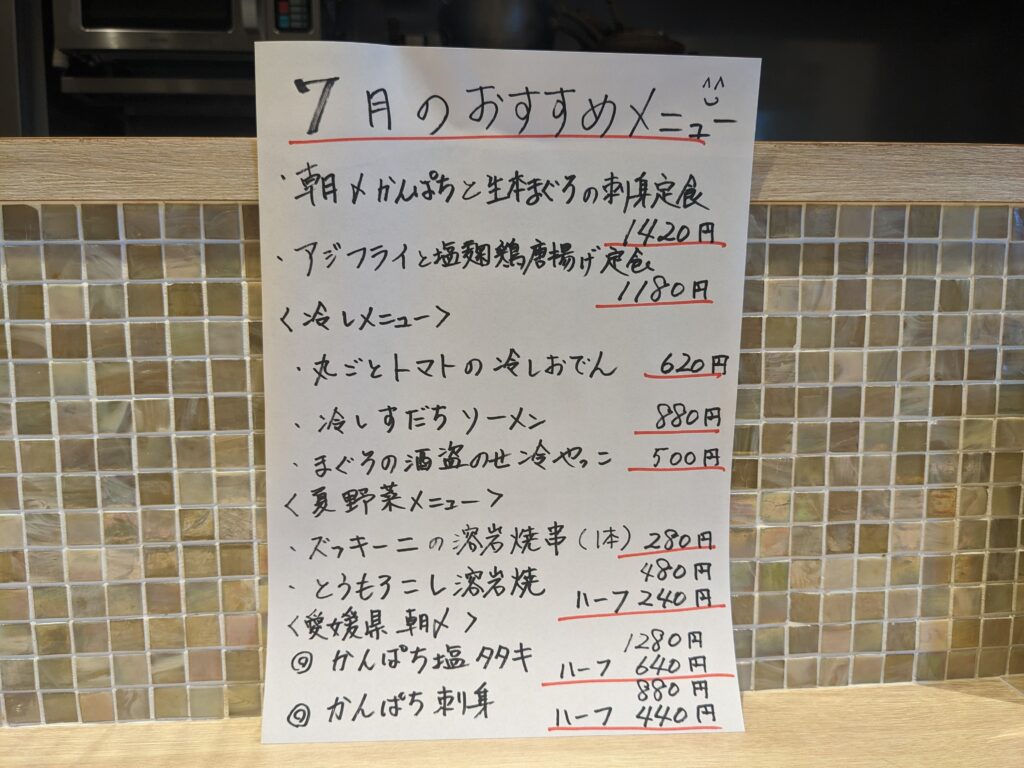 7月のおすすめメニュー
・朝〆かんぱちと生本まぐろの刺身定食
1420円
・アジフライと塩麹鶏唐揚げ定食
1180円
〈冷しメニュー〉
・丸ごとトマトの冷しおでん 620円
・冷しすだちソーメン 880円
・まぐろの酒盗のせ冷やっこ 500円
〈夏野菜メニュー〉
・ズッキーニの溶岩焼串(1本) 280円
480円
・とうもろこし溶岩焼 ハーフ 240円
〈愛媛県 朝〆〉
1280円
◎かんぱち塩タタキ ハーフ 640円
880円
◎かんぱち刺身 ハーフ 440円